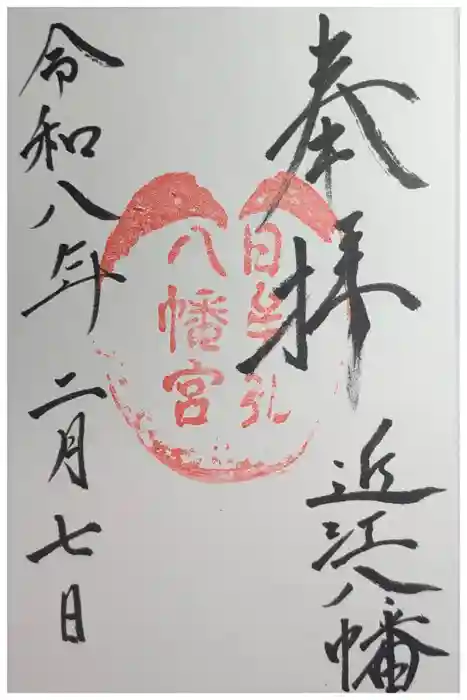 奉拝
近江八幡
日牟礼
八幡宮
令和八年 二月七日